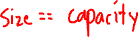 Size == capacity